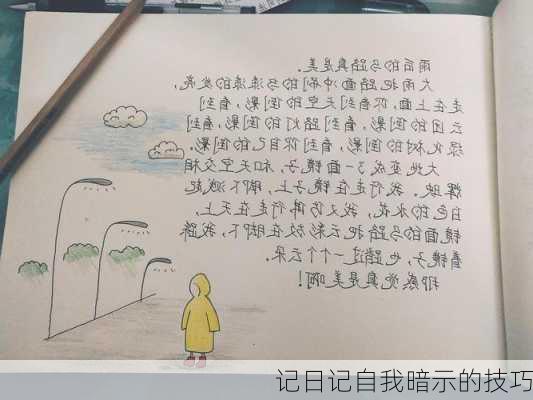 雨后的马路真是美。
大雨把路面冲刷的乌漆漆的发亮,
走在上面,你看到天空的倒影,看到
云团的倒影,看到路灯的倒影,看到
绿化树的倒影,看到你自己的倒影。
大地变成了一面镜子,和天空交相
辉映。我行走在镜子上,脚下溅起
白色的水花,我又仿佛行走在天上,
镜面的马路把云彩放在脚下,我踩
着镜子,也踏过一个个云朵。
那感觉真是美啊!
记日记自我暗示的技巧